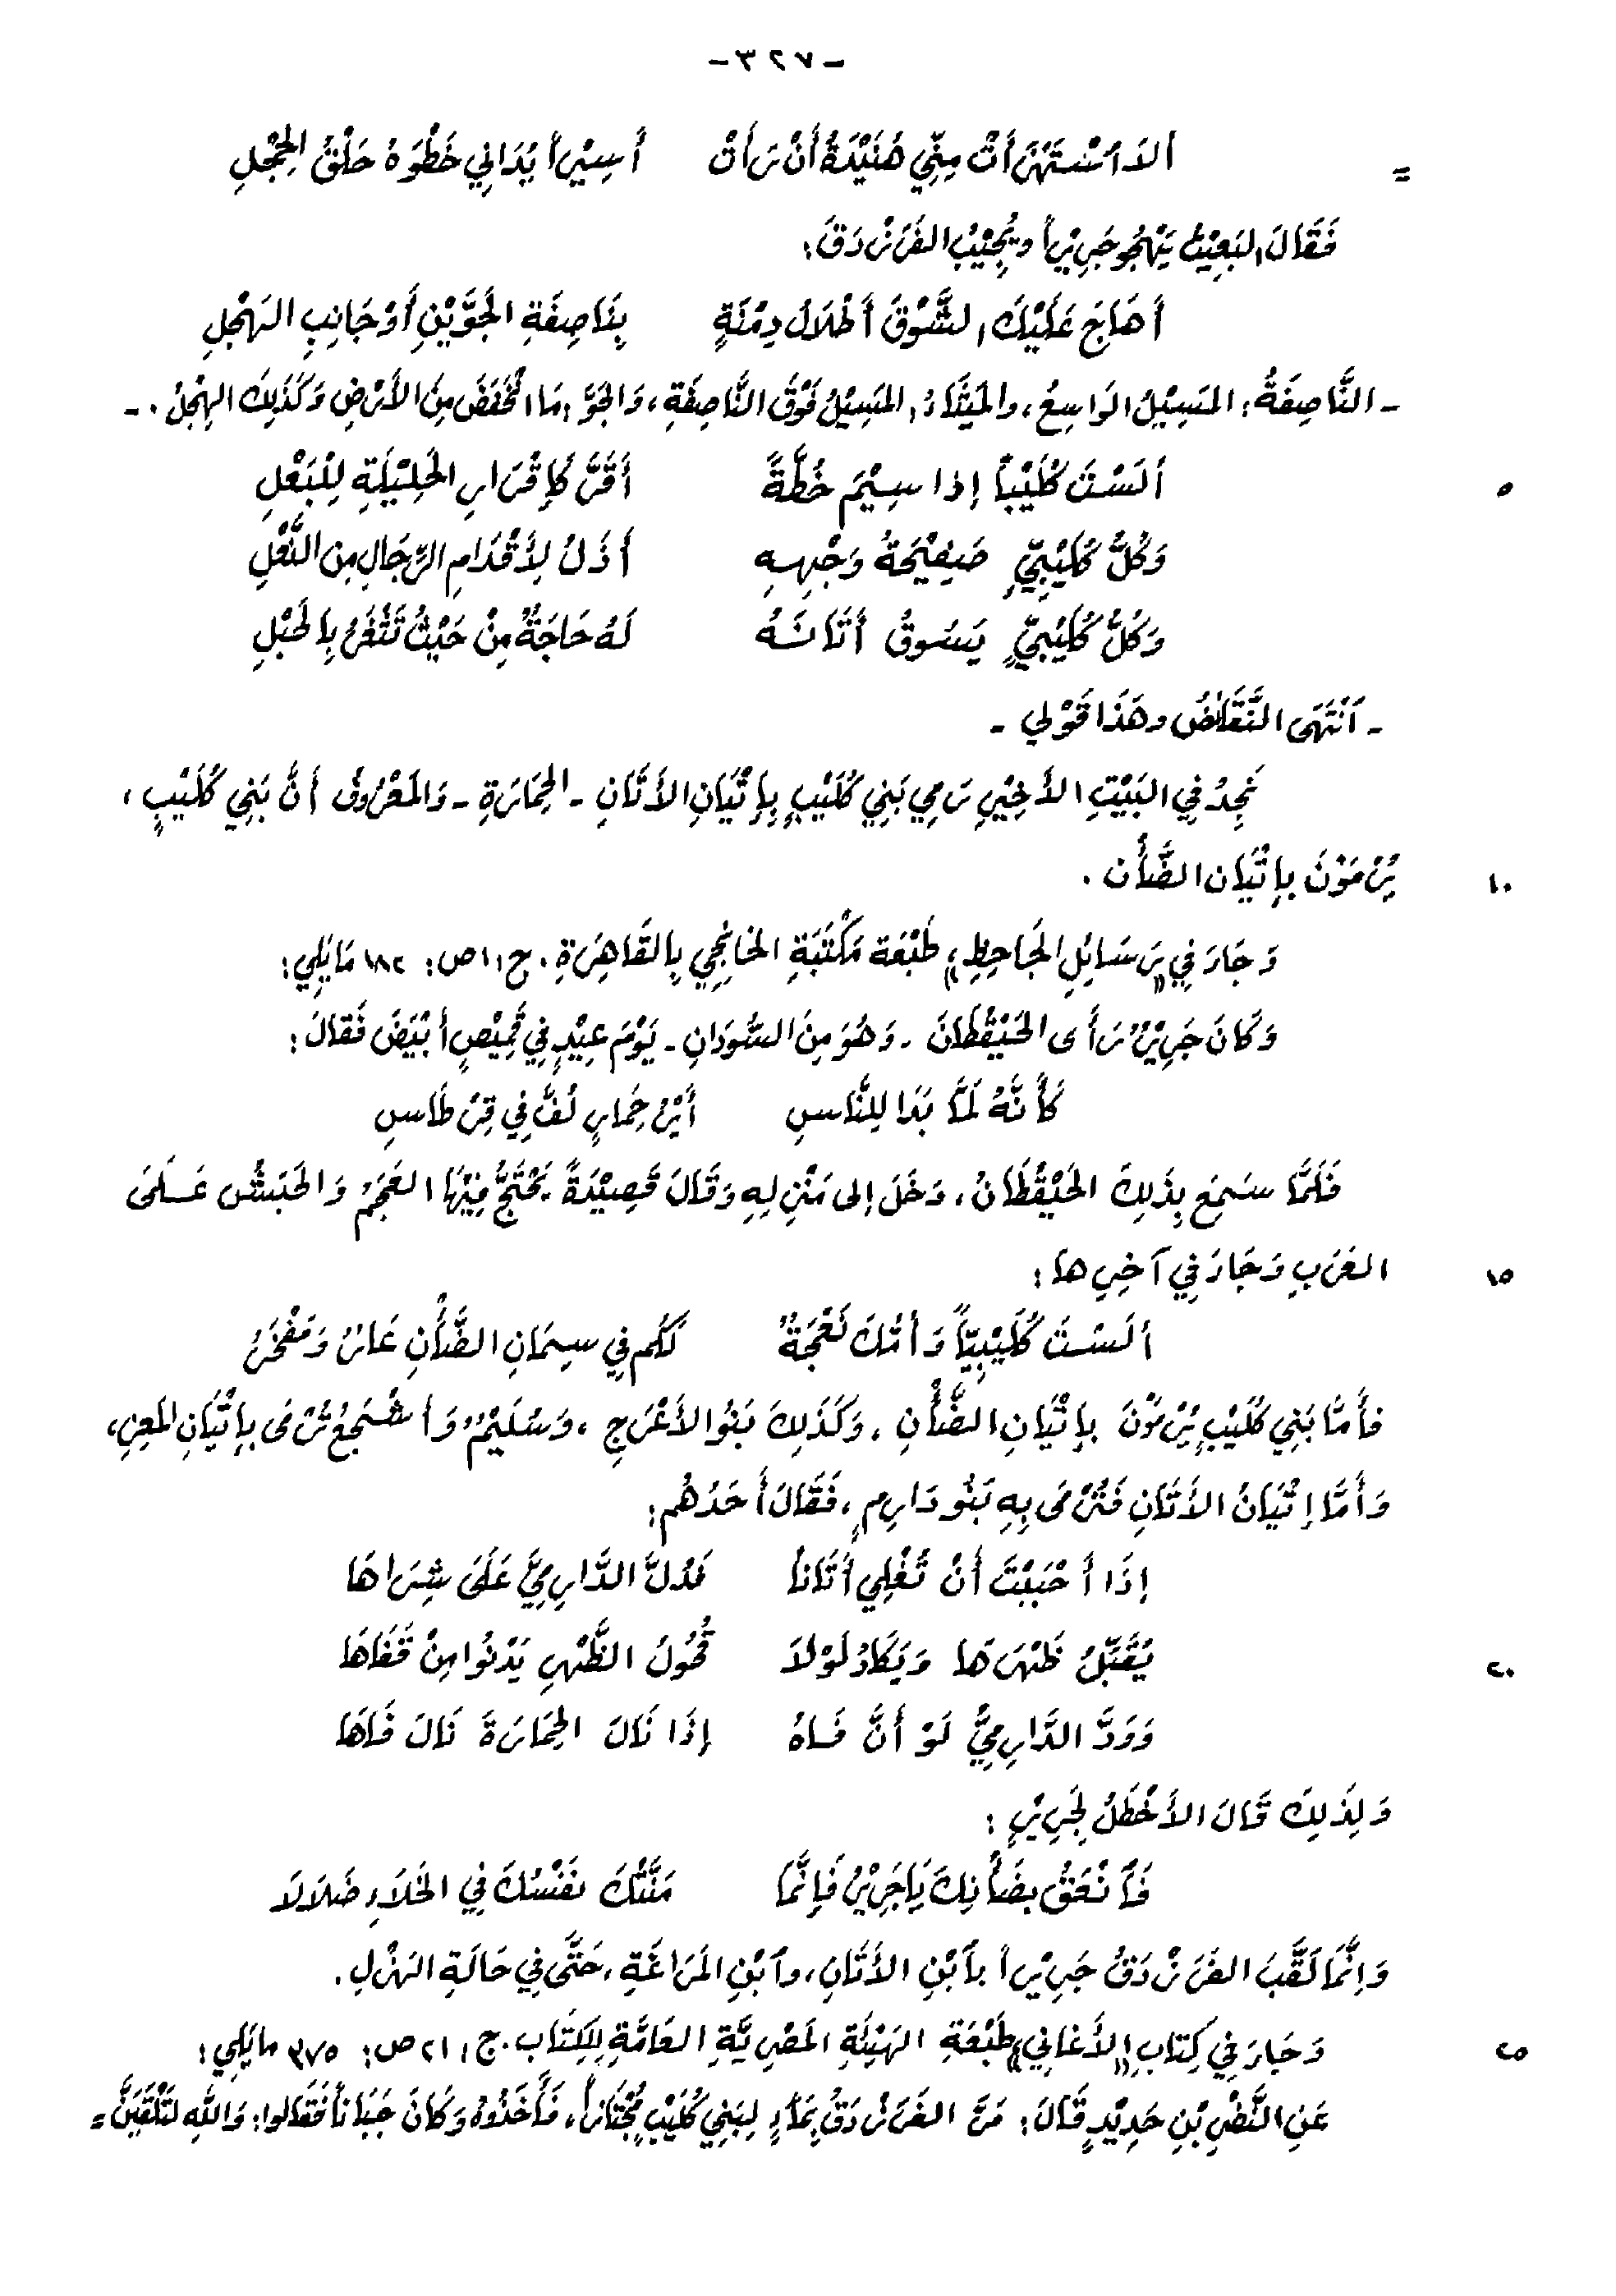 -٧٢٣-
= أَلاَ ٱسْتَهْزَأَتْ مِنِّي هُنَيْدَةُ أَنْ رَأَتْ أَسِيْراً يُدَانِي خَطْوَهُ حَلْقُ الحِجْلِ
فَقَالَ البَعِيْثُ يَهْجُو جَرِيْراً ويُجِيْبُ الفَرَزْدَقَ:
أَهَاجَ عَلَيْكَ الشَّوْقَ أَطْلاَلُ دِمْنَةٍ بِنَاصِفَةِ الجَوَّيْنِ أَوْ جَانِبِ الهَجْلِ
- النَّاصِفَةُ: المَسِيْلُ الوَاسِعُ، والمَيْثَاءُ: المَسِيْلُ فَوْقَ النَّاصِفَةِ، وَالجَوُّ: مَا انْخَفَضَ مِنَ الأَرْضِ وَكَذَلِكَ الهِجْلُ. -
٥ أَلَسْتَ كُلَيْباً إذا سِيْمَ خُطَّةً أَقَرَّ كَإِقْرَارِ الحَلِيْلَةِ لِلْبَعْلِ
وَكُلُّ كُلَيْبِيٍّ صَفِيْحَةُ وَجْهِهِ أَذَلُّ لِأَقْدَامِ الرِّجَالِ مِنَ النَّعْلِ
وَكُلُّ كُلَيْبِيٍّ يَسُوقُ أَتَانَهُ لَهُ حَاجَةٌ مِنْ حَيْثُ تُثْفَرُ بِالحَبْلِ
- ٱنْتَهَى النَّقَائِضُ وهَذَا قَوْلِي -
نَجِدُ فِي البَيْتِ الأَخِيْرِ رَمِي بَنِي كُلَيْبٍ بِإِتْيَانِ الأَتَانِ - الحِمَارَةِ - وَالمَعْرُوفُ أَنَّ بَنِي كُلَيْبٍ،
١٠ يُرْمَوْنَ بإتْيَان الضَّأْن.
وَجَاءَ فِي «رَسَائِلِ الجَاحِظِ» طَبْعَة مَكْتَبَةِ الخَانْجِي بِالقَاهِرَةِ. ج: ١ ص: ١٨٢ مَايَلِي:
وَكَانَ جَرِيْرٌ رَأَى الحَيْقُطَانَ - وَهُوَ مِنَ السُّودَانِ - يَوْمَ عِيْدٍ فِي قَمِيْصٍ أبْيَضَ فَقَالَ:
كَأَنَّهُ لَمَّا بَدَا لِلنَّاسِ أَيْرُ حِمَارٍ لُفَّ فِي قِرْطَاسِ
فَلَمَّا سَمِعَ بِذَلِكَ الحَيْقُطَانُ، دَخَلَ إلى مَنْزِلِهِ وَقَالَ قَصِيْدَةً يَحْتَجُّ فِيْهَا العَجَمُ وَالحَبَشُ عَلَى
١٥ العَرَبِ وَجَاءَ فِي آخِرِهَا:
أَلَسْتَ كُلَيْبِيّاً وَأُمُّكَ نَعْجَةٌ لَكُم فِي سِمَانِ الضَّأْنِ عَارٌ وَمَفْخَرُ
فأَمَّا بَنِي كُلَيْبٍ يُرْمَوْنَ بإتْيَانِ الضَّأْنِ، وَكَذَلِكَ بَنُو الأَعْرَجِ، وَسُلَيْمٌ وَأَشْجَعُ تُرْمَى بإتْيَانِ المَعِزِ،
وَأَمَّا إتْيَانُ الأَتَانِ فَتُرْمَى بِهِ بَنُو دَارِمٍ، فَقَالَ أَحَدُهُم:
إذَا أَحْبَبْتَ أَنْ تُغْلِي أَتَاناً فَدُلَّ الدَّارِمِيَّ عَلَى شِرَاهَا
٢٠ يُقَبِّلُ ظَهْرَهَا وَيَكَادُ لَوْلاَ قُحُولُ الظَّهْرِ يَدْنُوا مِنْ قَفَاهَا
وَوَدَّ الدَّارِمِيُّ لَوْ أَنَّ فَاهُ إذَا نَالَ الحِمَارَةَ نَالَ فَاهَا
وَلِذَلِكَ قَالَ الأَخْطَلُ لِجَرِيْرٍ:
فَٱنْعَقْ بِضَأْنِكَ يَا جَرِيْرُ فَإِنَّمَا مَنَّتْكَ نَفْسُكَ فِي الخَلاَءِ ضَلاَلاَ
وَإِنَّمَا لَقَّبَ الفَرَزْدَقُ جَرِيْراً بٱبْنِ الأَتَانِ، وٱبْنِ المَرَاغَةِ، حَتَّى فِي حَالَةِ الهَزْلِ.
٢٥ وَجَاءَ فِي كِتَابِ «الأَغَانِي» طَبْعَةِ الهَيْئَةِ المَصْرِيَّةِ العَامَّةِ لِلكِتَاب. ج: ٢١ ص: ٣٧٥ مايَلِي:
عَنِ النَّضْرِ بْنِ حَدِيْدٍ قَالَ: مَرَّ الفَرَزْدَقُ بِمَاءٍ لِبَنِي كُلَيْبٍ مُجْتَازاً، فَأَخَذُوهُ وَكَانَ جَبَاناً فَقَالوا: وَاللهِ لتَلْقَيَنَّ =